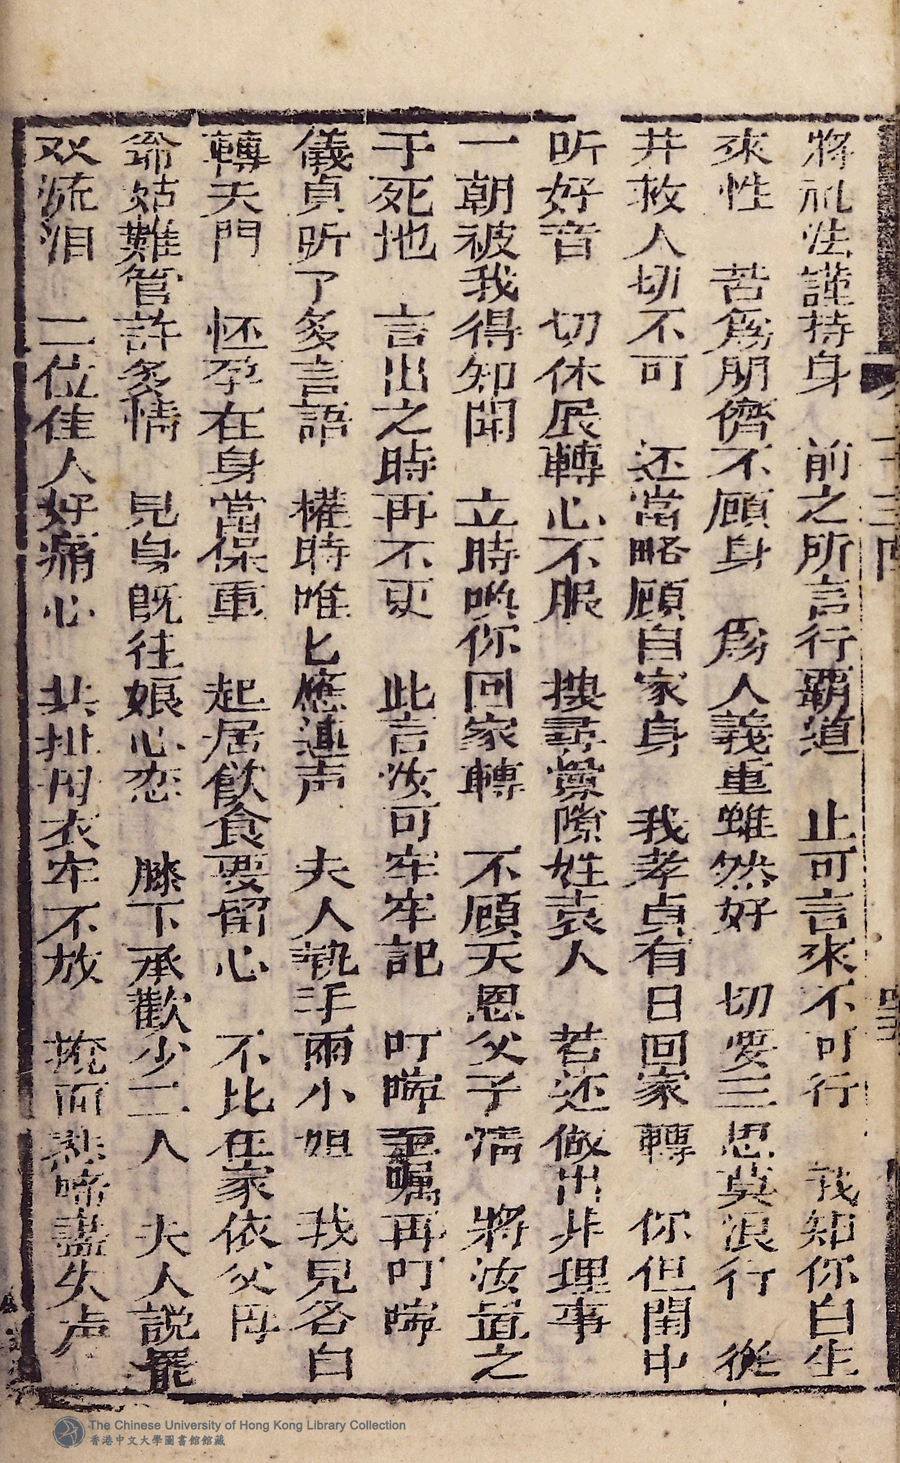 將礼法謹持身　前之所言行霸道　止可言來不可行　我知你自生
來性　苦為朋儕不顧身　為人義重雖然好　切要三思莫浪行　從
井救人切不可　还當略顧自家身　我孝貞有日回家轉　你但閨中
听好音　切休展轉心不服　搜尋釁隙姓袁人　若还做出非理事
一朝被我得知聞　立時喚你回家轉　不顧天恩父子情　將汝置之
于死地　言出之時再不更　此言汝可牢牢記　叮嚀重囑再叮嚀
儀貞听了多言語　權時唯匕應連声　夫人執手兩小姐　我兒各自
轉夫門　怀孕在身當保重　起居飲食要留心　不比在家依父母
翁姑難管許多情　兒身既往娘心恋　膝下承歡少二人　夫人說罷
双流泪　二位佳人好痛心　共扯母衣牢不放　掩面悲啼盡失声
二十三回
The Chinese University of Hong Kong Library Collection
香港中文大學圖書館館藏